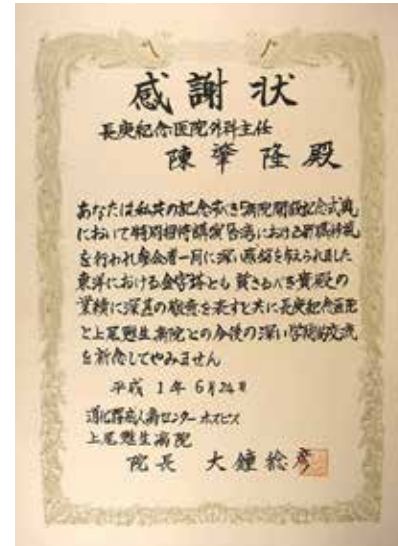 感謝状
長庚紀念医院外科主任
陳肇隆殿
あなたは私共の記念すべき病院開設記念式典
において特別招待講演台湾における肝臓移植
を行われ参会者一同に深い感銘を与えられました
東洋における金字塔とも 賛さるべき貴殿の
業績に深甚の敬意を表すと共に長庚紀念医院
と上尾甦生病院との今後の深い学術的交流
を祈念してやみません
平成1年6月24日
消化器癌人癌センター ホスピス
上尾甦生病院
院長 大鐘稔彦